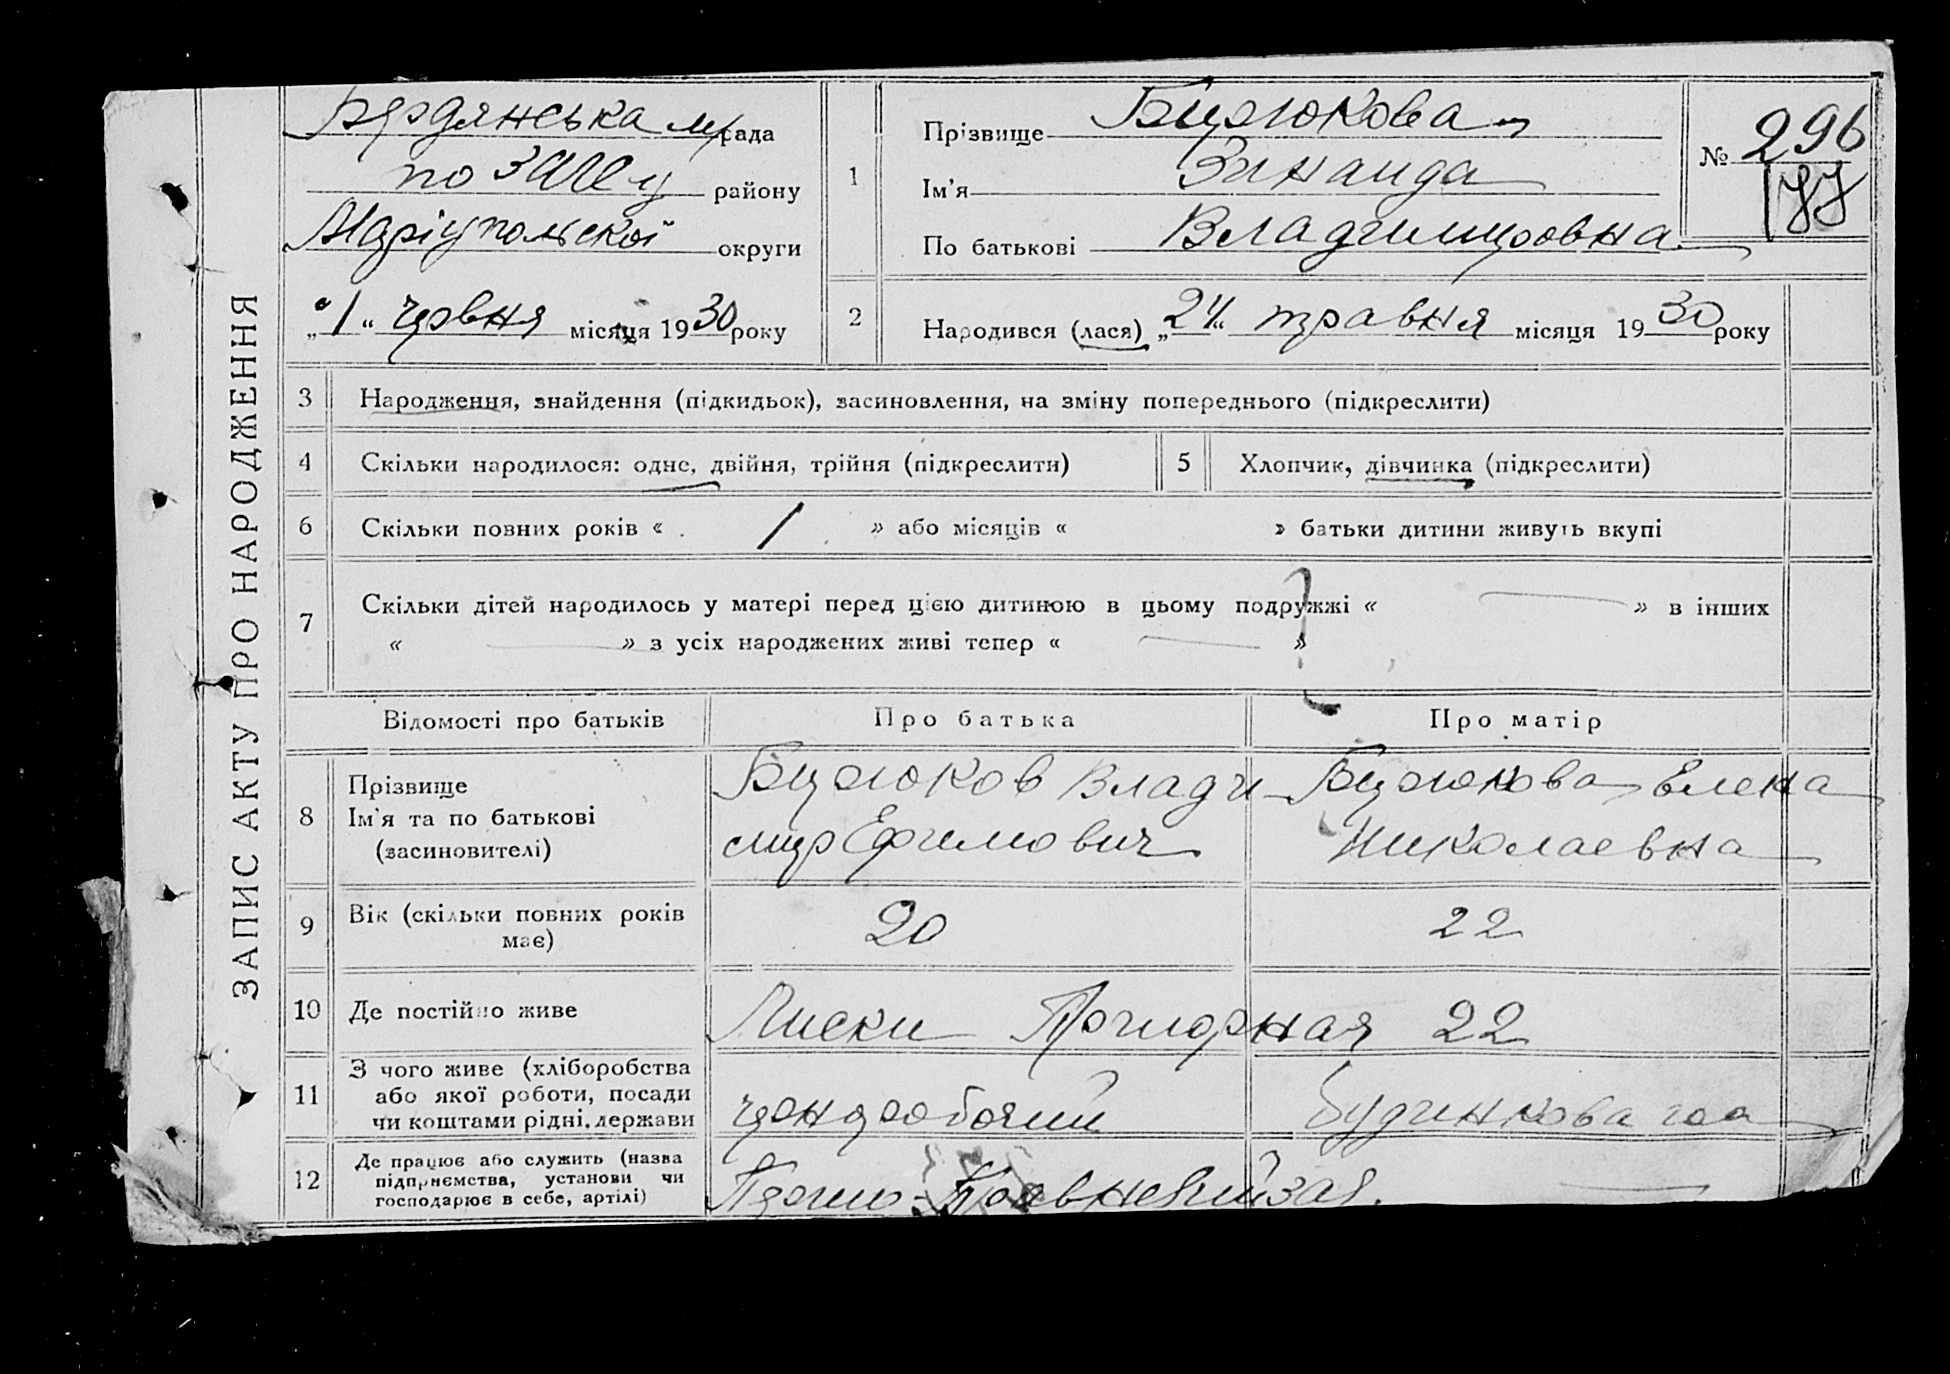 ЗАПИС АКТУ ПРО НАРОДЖЕННЯ
Бердянська м/рада
по ЗАГСу району
Маріупольської округи
„1“ червня місяця 1930 року
1
Прізвище Бирюкова
Ім'я Зинаида
По батькові Владимировна
№ 296
177
2
Народився (лася) „24“ травня місяця 1930 року
3 Народження, знайдення (підкидьок), засиновлення, на зміну попереднього (підкреслити)
4 Скільки народилося: одне, двійня, трійня (підкреслити)
5 Хлопчик, дівчинка (підкреслити)
6 Скільки повних років « 1 » або місяців « » батьки дитини живуть вкупі
7 Скільки дітей народилось у матері перед цією дитиною в цьому подружжі « — » в інших
« — » з усіх народжених живі тепер « — »
Відомості про батьків Про батька Про матір
8 Прізвище
Ім'я та по батькові
(засиновителі)
Бирюков Влади-
мир Ефимович
Бирюкова Елена
Николаевна
9 Вік (скільки повних років
має)
20
22
10 Де постійно живе
Лиски Нагорная 22
11 З чого живе (хліборобства
або якої роботи, посади
чи коштами рідні, держави
чорнробочий
12 Де працює або служить (назва
підприємства, установи чи
господарює в себе, артілі)
—